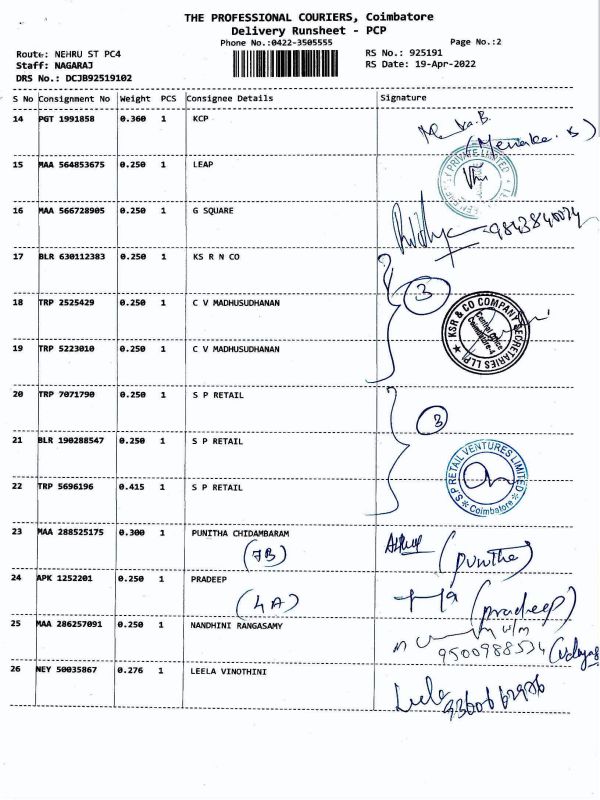 THE PROFESSIONAL COURIERS, Coimbatore
Delivery Runsheet - PCP
Phone No.:0422-3505555 Page No.:2
Route: NEHRU ST PC4 RS No.: 925191
Staff: NAGARAJ RS Date: 19-Apr-2022
DRS No.: DCJB92519102
S No Consignment No Weight PCS Consignee Details Signature
14 PGT 1991858 0.360 1 KCP
(Menaka. B)
15 MAA 564853675 0.250 1 LEAP
PRIVATE LIMITED
16 MAA 566728905 0.250 1 G SQUARE
Vidhya 9843840074
17 BLR 630112383 0.250 1 KS R N CO
3
18 TRP 2525429 0.250 1 C V MADHUSUDHANAN
KSR & CO COMPANY SECRETARIES LLP
Central Office
Coimbatore-4
19 TRP 5223010 0.250 1 C V MADHUSUDHANAN
20 TRP 7071790 0.250 1 S P RETAIL
3
21 BLR 190288547 0.250 1 S P RETAIL
S.P RETAIL VENTURES LIMITED
Coimbatore
22 TRP 5696196 0.415 1 S P RETAIL
23 MAA 288525175 0.300 1 PUNITHA CHIDAMBARAM
(7B) (Punitha)
24 APK 1252201 0.250 1 PRADEEP
(4A) (pradeep)
25 MAA 286257091 0.250 1 NANDHINI RANGASAMY
9500988534
26 NEY 50035867 0.276 1 LEELA VINOTHINI
Leela 9360662976